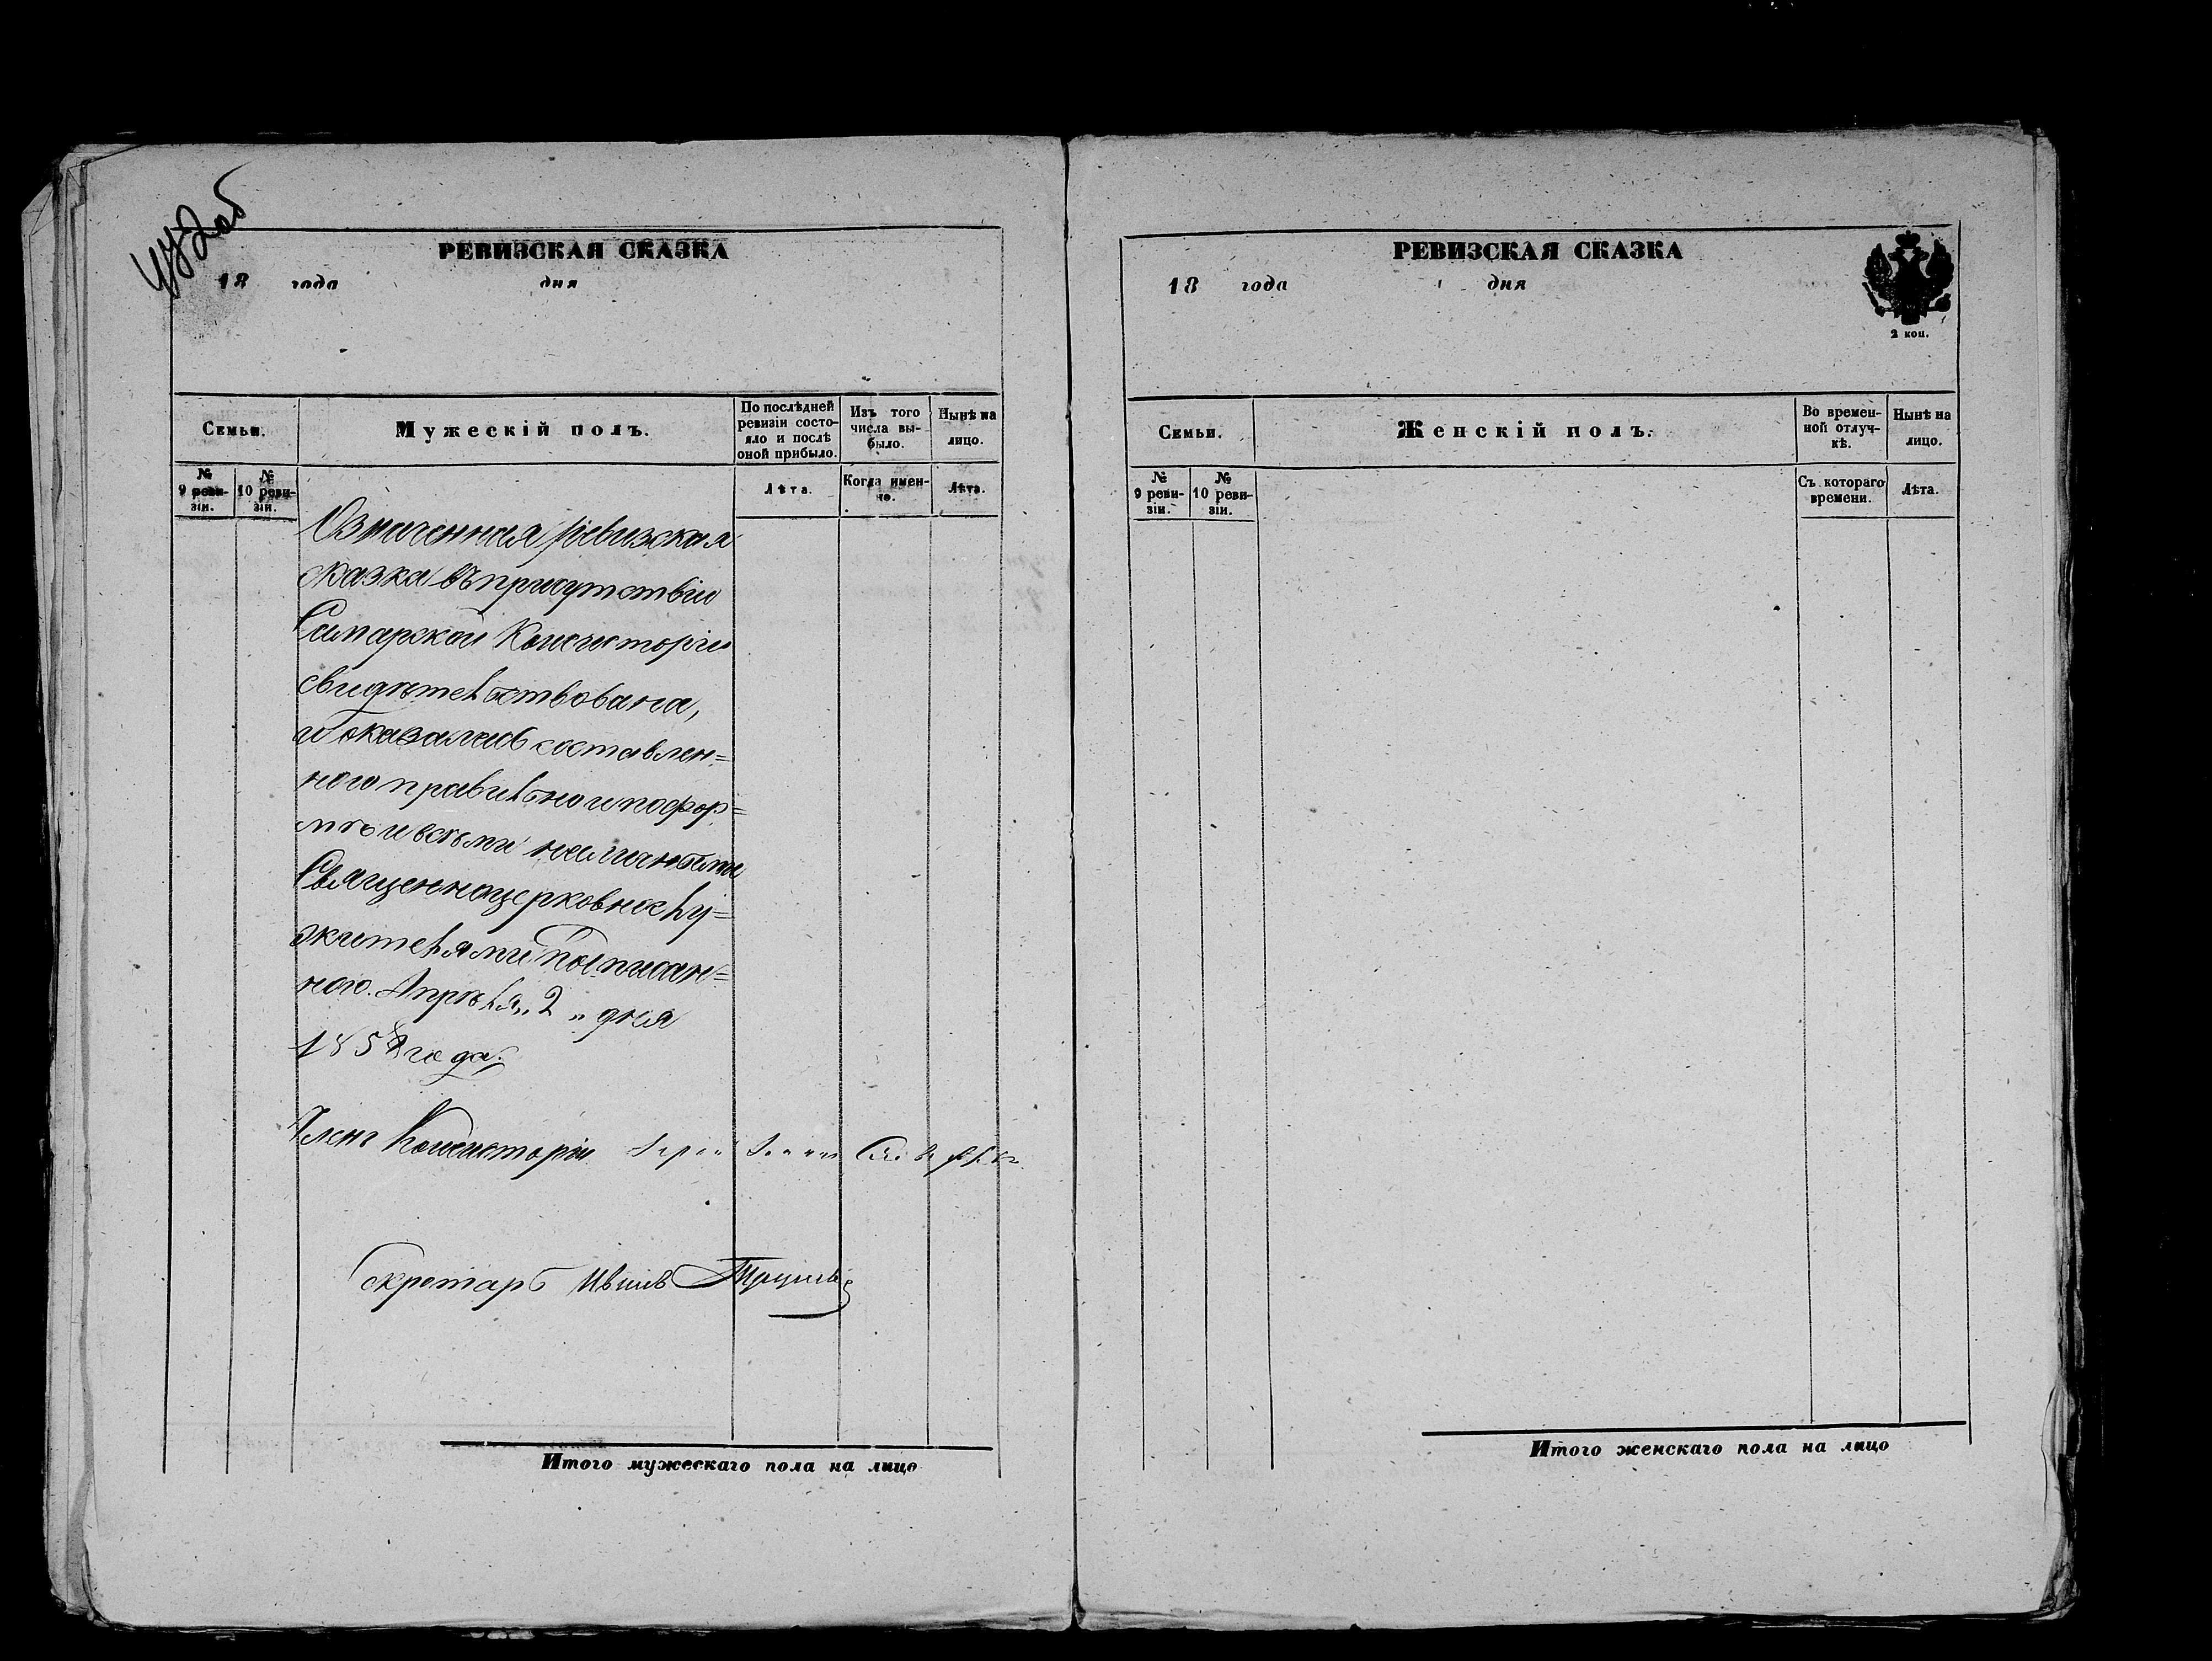 РЕВИЗСКАЯ СКАЗКА
18 года дня
Семьи.
Мужескій полъ.
По послѣдней ревизіи состо-
яло и послѣ
оной прибыло.
Изъ того
числа вы-
было.
Нынѣ на
лицо.
№
9 реви-
зіи.
№
10 реви-
зіи.
Лѣта.
Когда имен-
но.
Лѣта.
Означенная ревизская
сказка въ присутствіи
Самарской Консисторіи
свидѣтельствована,
и оказалась составлен=
ного правильно и по фор=
мѣ и всѣми наличными
Священноцерковнослу=
жителями подписан=
ного. Апрѣля „2„ дня
1858 года.
Членъ Консисторіи
Секретарь Иванъ
Итого мужескаго пола на лицо
РЕВИЗСКАЯ СКАЗКА
18 года дня
2 коп.
Семьи.
Женскій полъ.
Во времен-
ной отлуч-
кѣ.
Нынѣ на
лицо.
№
9 реви-
зіи.
№
10 реви-
зіи.
Съ котораго
времени.
Лѣта.
Итого женскаго пола на лицо